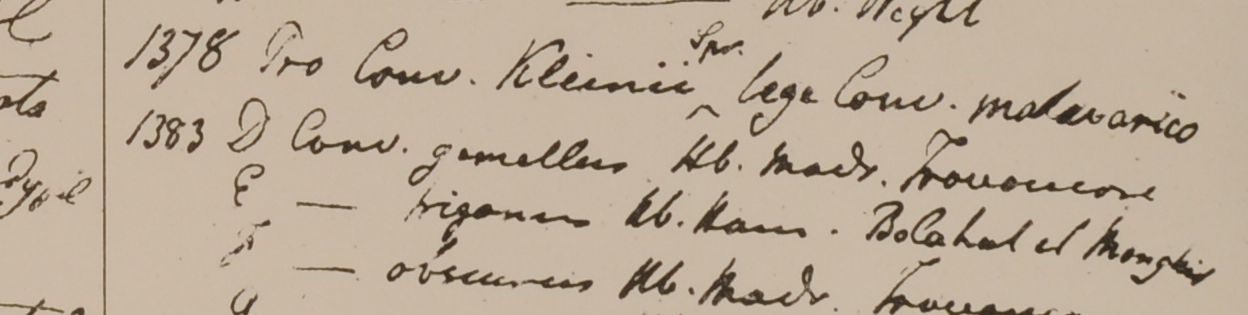 Hb. Wight
1378 Pro Conv. Kleinii Spr. lege Conv. malavarico
1383 D Conv. gemellus Hb. Madr. Travancore
E — trigonus Hb. Ham. et
F — obscurus Hb. Madr.
G